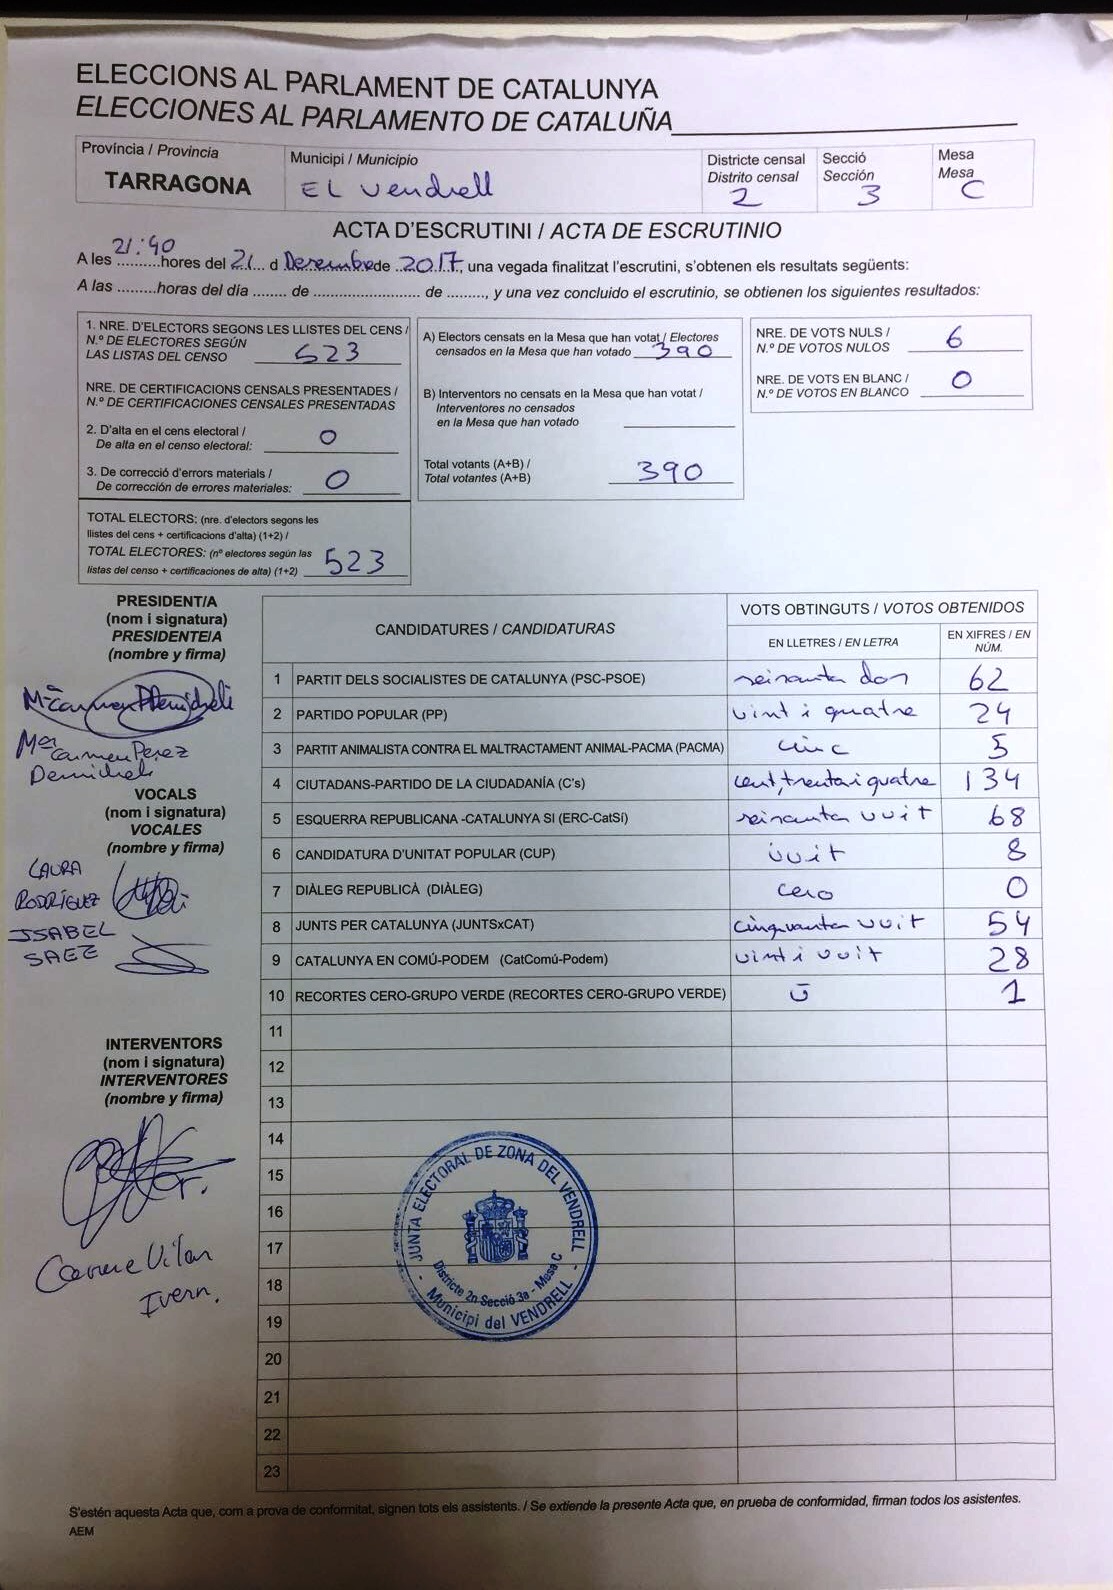 ELECCIONS AL PARLAMENT DE CATALUNYA
ELECCIONES AL PARLAMENTO DE CATALUÑA
Província / Provincia
TARRAGONA
Municipi / Municipio
EL Vendrell
Districte censal
Distrito censal
2
Secció
Sección
3
Mesa
Mesa
C
ACTA D'ESCRUTINI / ACTA DE ESCRUTINIO
A les 21:40 hores del 21 d Desembre de 2017, una vegada finalitzat l'escrutini, s'obtenen els resultats següents:
A las .........horas del día ....... de ....................... de ........, y una vez concluido el escrutinio, se obtienen los siguientes resultados:
1. NRE. D'ELECTORS SEGONS LES LLISTES DEL CENS /
N.º DE ELECTORES SEGÚN
LAS LISTAS DEL CENSO 523
NRE. DE CERTIFICACIONS CENSALS PRESENTADES /
N.º DE CERTIFICACIONES CENSALES PRESENTADAS
2. D'alta en el cens electoral /
De alta en el censo electoral: 0
3. De correcció d'errors materials /
De corrección de errores materiales: 0
TOTAL ELECTORS: (nre. d'electors segons les
llistes del cens + certificacions d'alta) (1+2) /
TOTAL ELECTORES: (nº electores según las
listas del censo + certificaciones de alta) (1+2) 523
A) Electors censats en la Mesa que han votat / Electores
censados en la Mesa que han votado 390
B) Interventors no censats en la Mesa que han votat /
Interventores no censados
en la Mesa que han votado
Total votants (A+B) /
Total votantes (A+B) 390
NRE. DE VOTS NULS /
N.º DE VOTOS NULOS 6
NRE. DE VOTS EN BLANC /
N.º DE VOTOS EN BLANCO 0
PRESIDENT/A
(nom i signatura)
PRESIDENTE/A
(nombre y firma)
Mª Carmen Demicheli
Mª
Carmen Perez
Demicheli
VOCALS
(nom i signatura)
VOCALES
(nombre y firma)
LAURA
RODRÍGUEZ
ISABEL
SAEZ
INTERVENTORS
(nom i signatura)
INTERVENTORES
(nombre y firma)
Carme Vilar
Ivern.
CANDIDATURES / CANDIDATURAS
VOTS OBTINGUTS / VOTOS OBTENIDOS
EN LLETRES / EN LETRA
EN XIFRES / EN
NÚM.
1 PARTIT DELS SOCIALISTES DE CATALUNYA (PSC-PSOE) seixanta dos 62
2 PARTIDO POPULAR (PP) vint i quatre 24
3 PARTIT ANIMALISTA CONTRA EL MALTRACTAMENT ANIMAL-PACMA (PACMA) cinc 5
4 CIUTADANS-PARTIDO DE LA CIUDADANÍA (C's) cent, trenta i quatre 134
5 ESQUERRA REPUBLICANA -CATALUNYA SI (ERC-CatSí) seixanta vuit 68
6 CANDIDATURA D'UNITAT POPULAR (CUP) vuit 8
7 DIÀLEG REPUBLICÀ (DIÀLEG) cero 0
8 JUNTS PER CATALUNYA (JUNTSxCAT) cinquanta vuit 54
9 CATALUNYA EN COMÚ-PODEM (CatComú-Podem) vint i vuit 28
10 RECORTES CERO-GRUPO VERDE (RECORTES CERO-GRUPO VERDE) 1
11
12
13
14
15
16
17
18
19
20
21
22
23
JUNTA ELECTORAL DE ZONA DEL VENDRELL
Districte 2n Secció 3a - Mesa C
- Municipi del VENDRELL -
S'estén aquesta Acta que, com a prova de conformitat, signen tots els assistents. / Se extiende la presente Acta que, en prueba de conformidad, firman todos los asistentes.
AEM